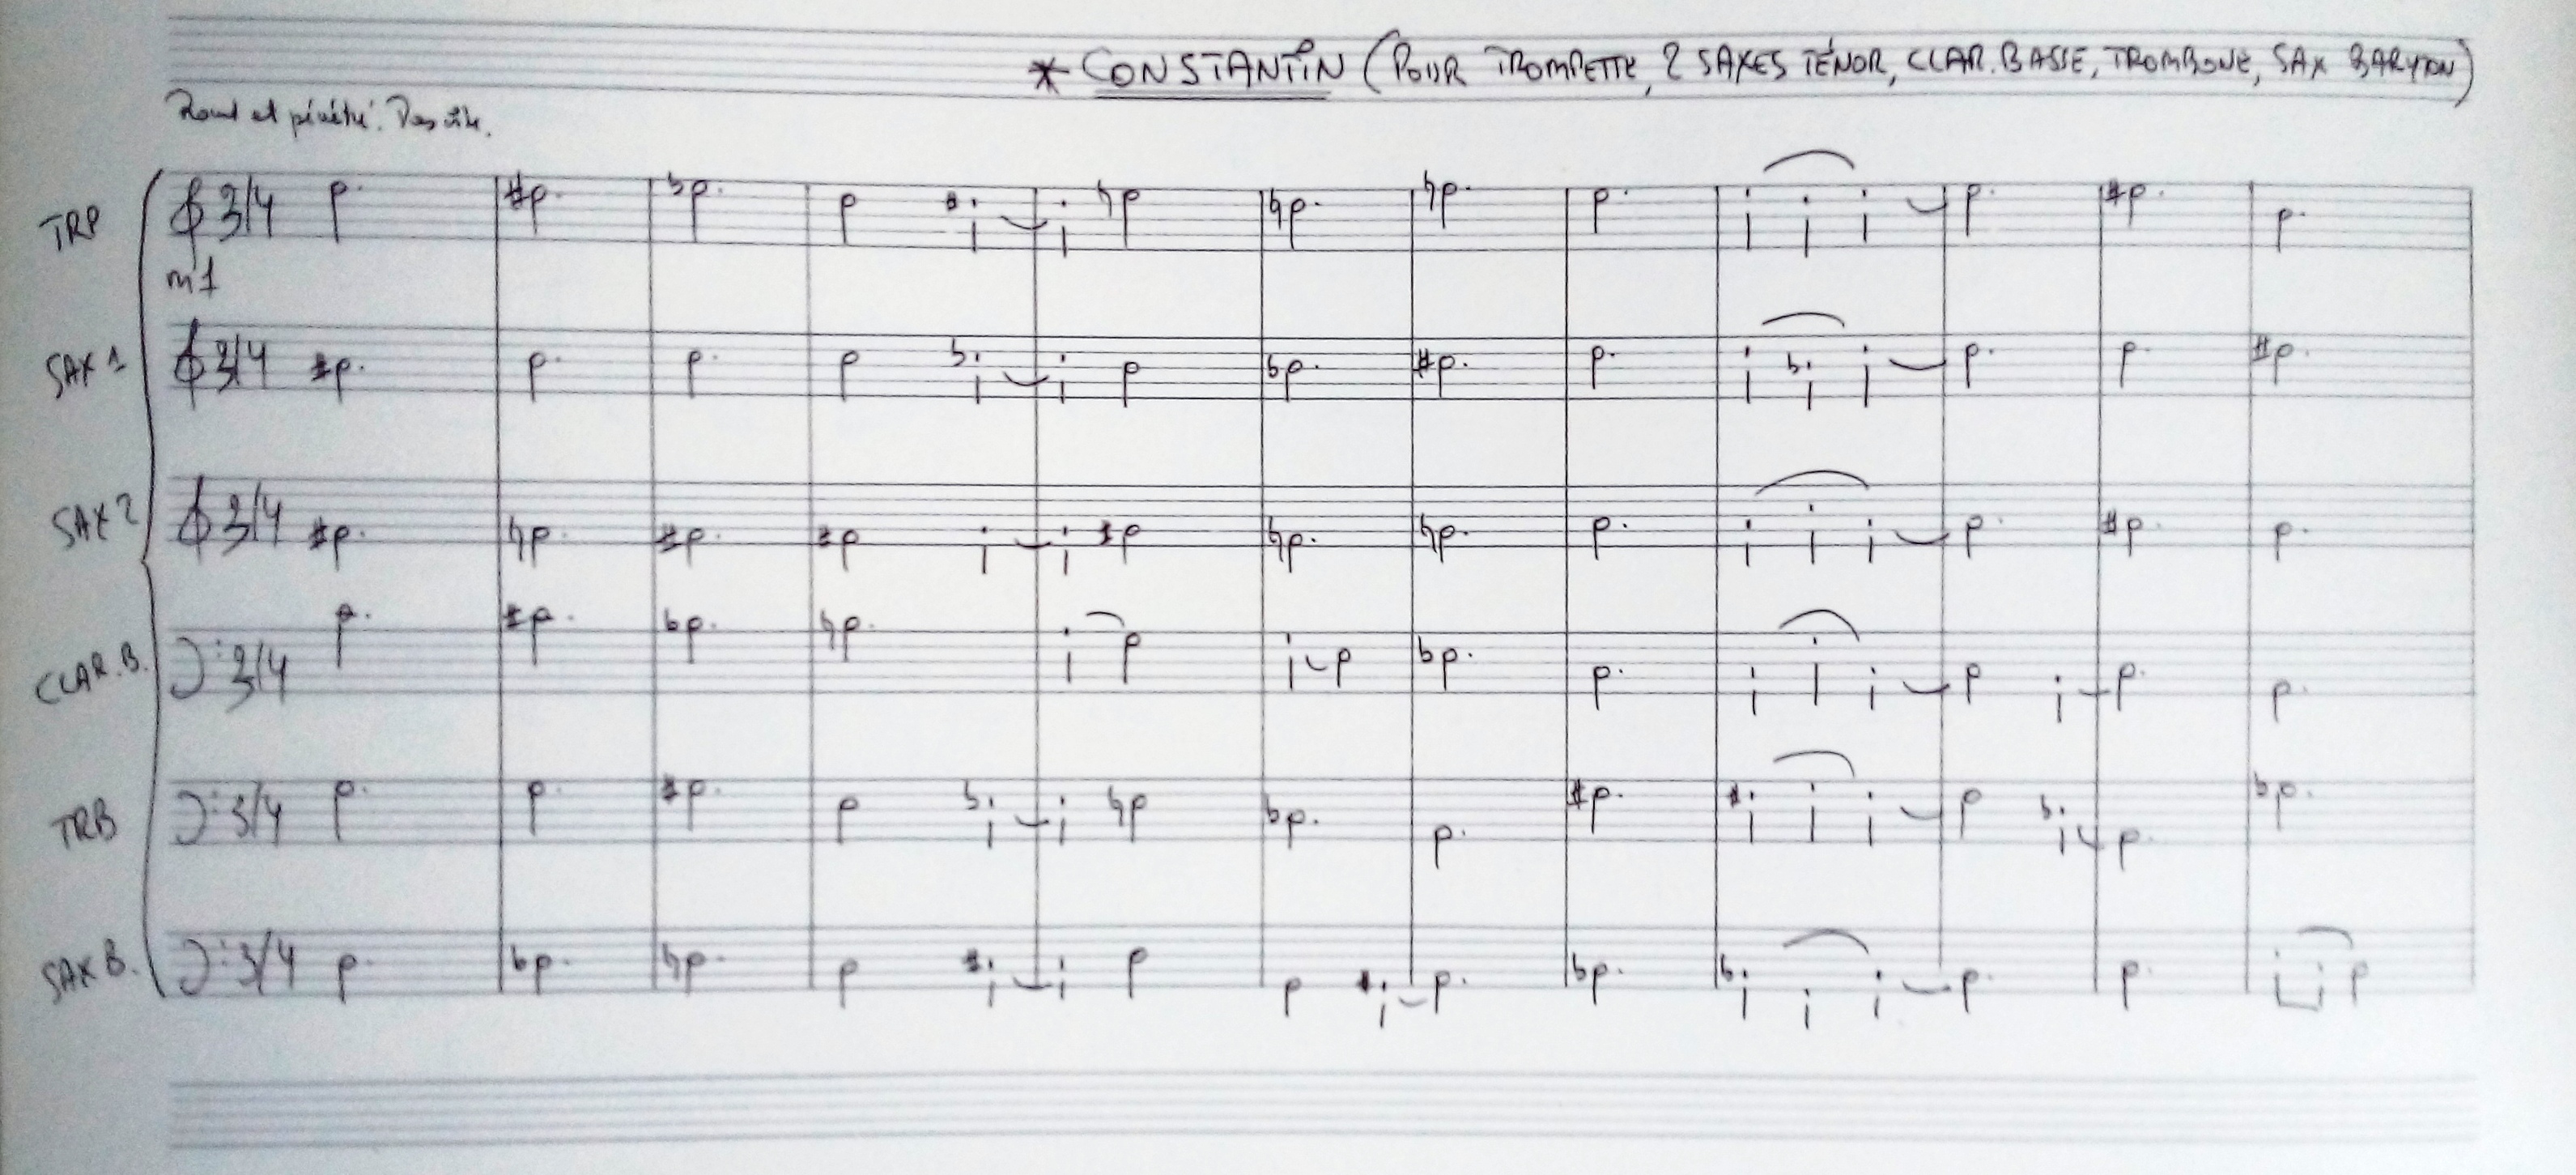 * CONSTANTIN (POUR TROMPETTE, 2 SAXES TÉNOR, CLAR. BASSE, TROMBONE, SAX BARYTON)
et Pas vite.
TRP 3/4
m1
SAX 1 3/4
SAX 2 3/4
CLAR. B. 3/4
TRB 3/4
SAX B. 3/4